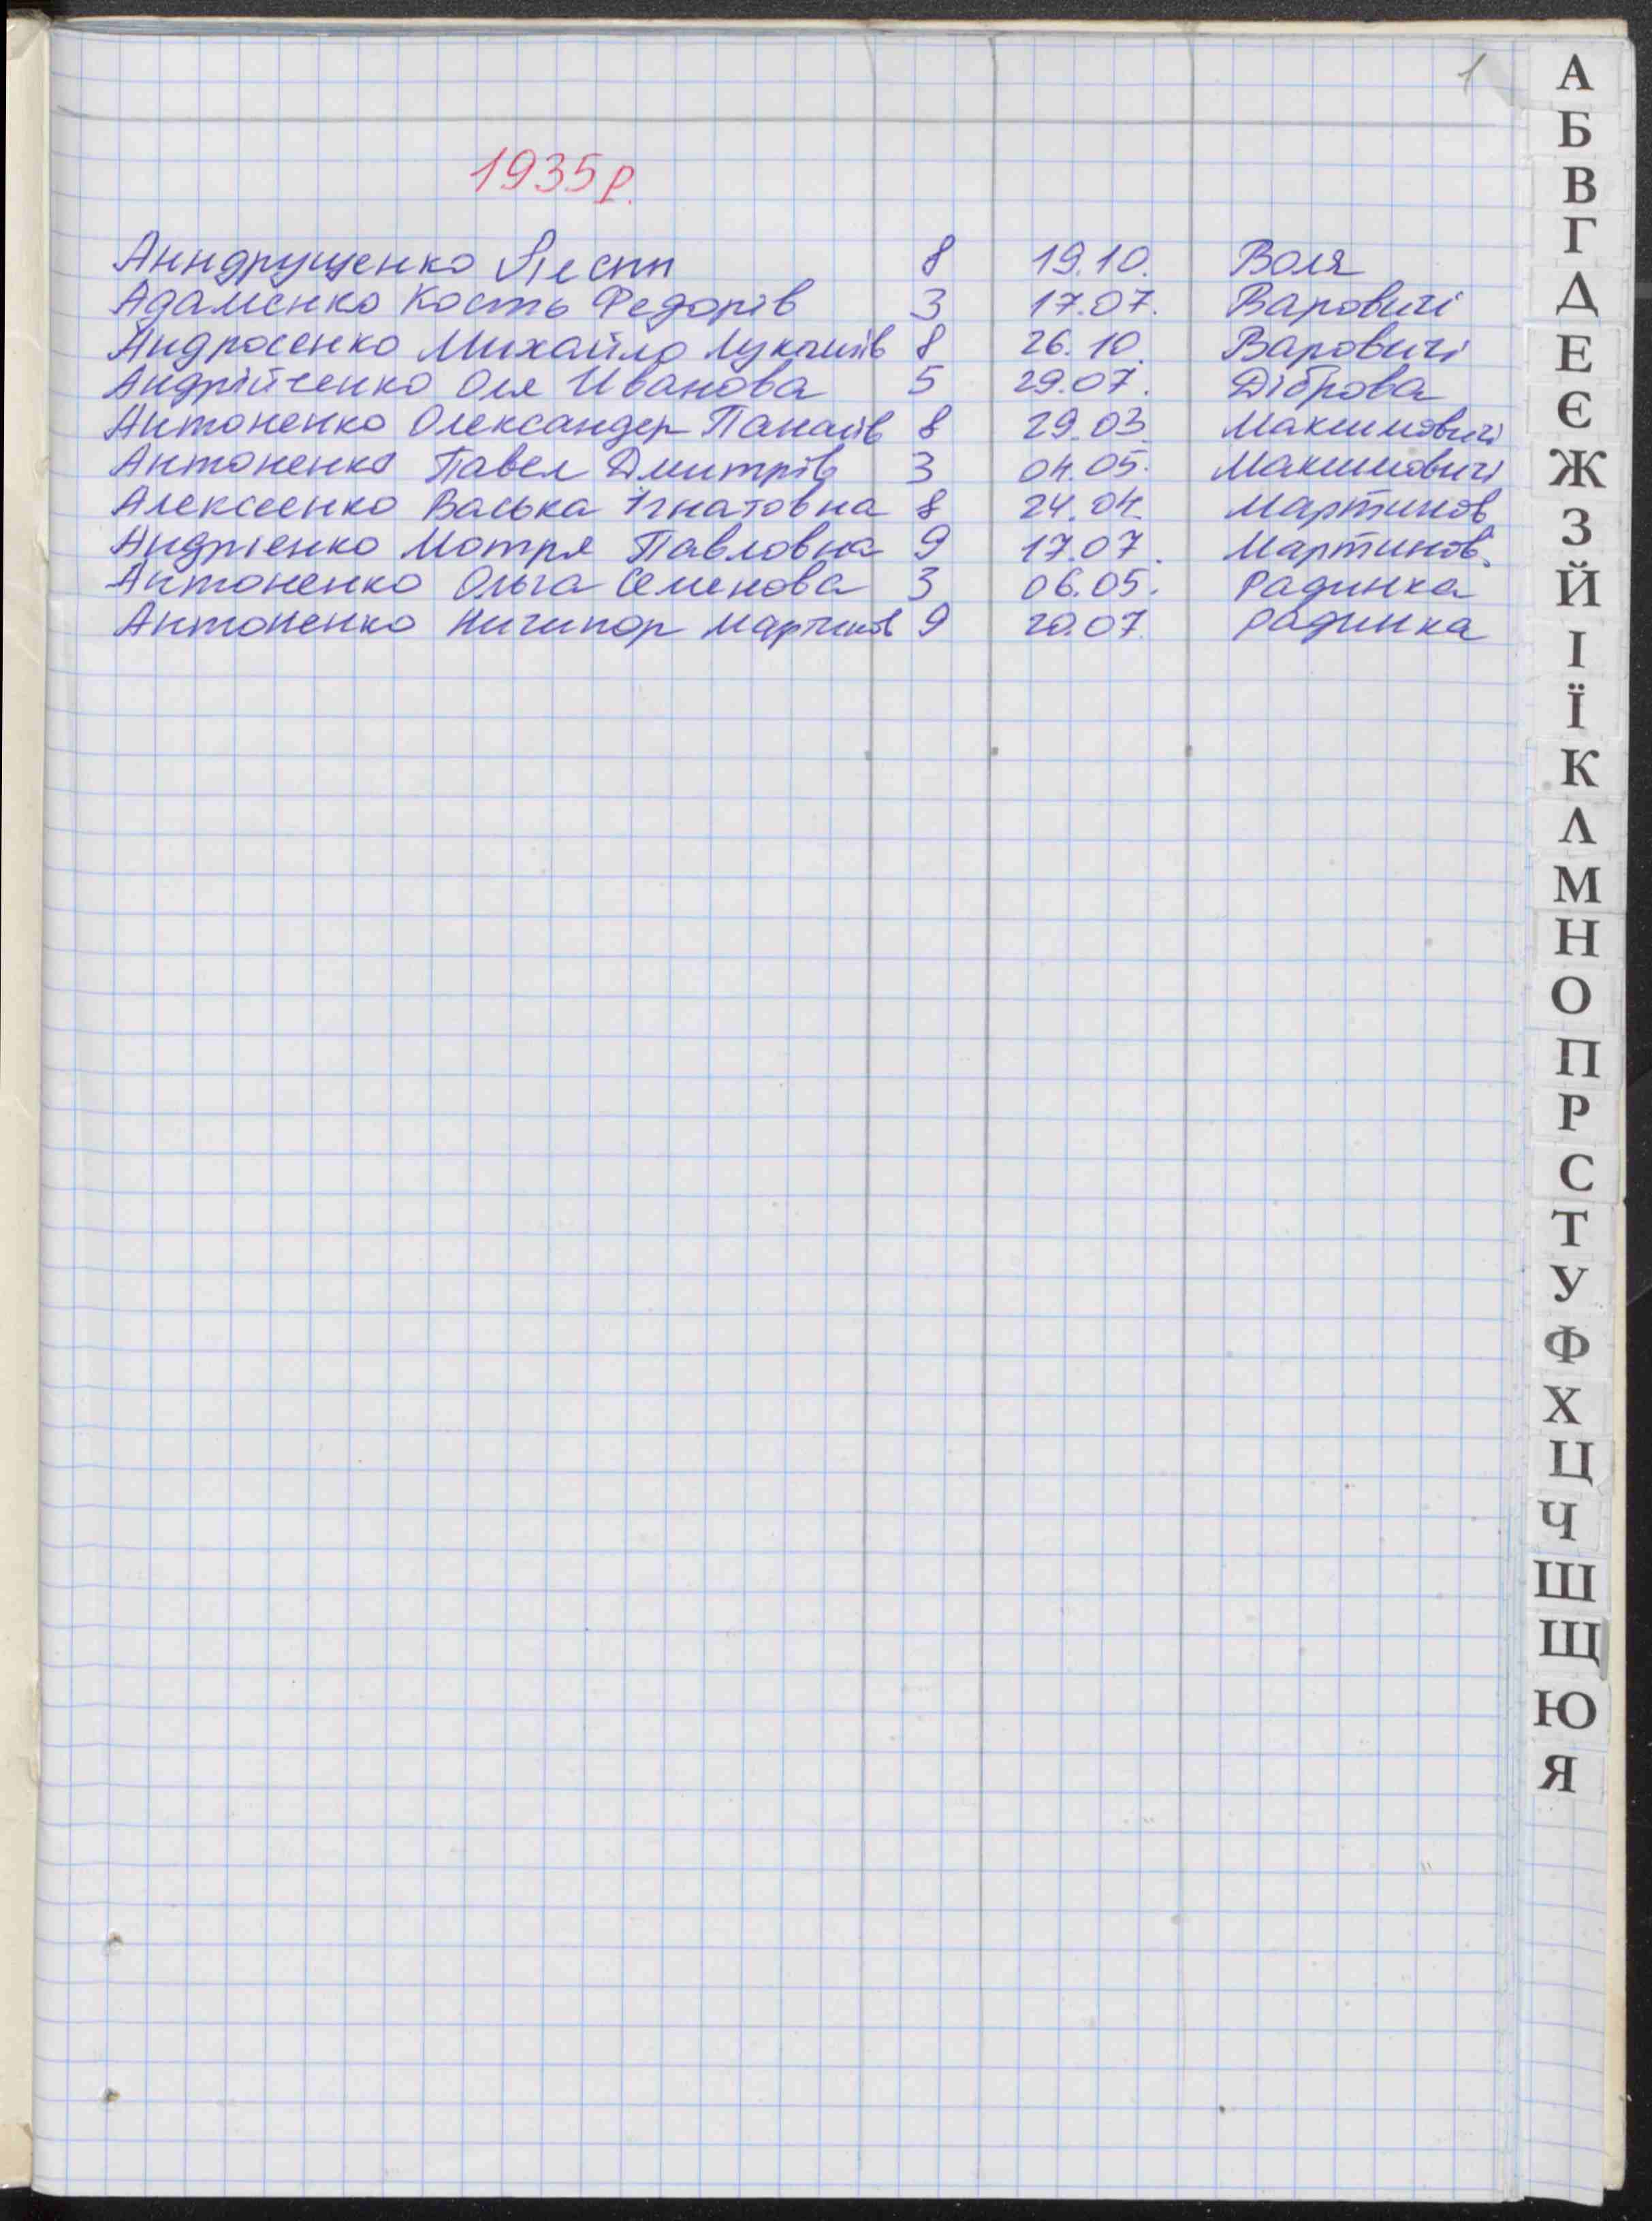 1
1935 р.
Анндрущенко 8 19.10. Воля
Адаменко Кость Федорів 3 17.07. Варовичі
Андросенко Михайло Лукашів 8 26.10. Варовичі
Андрійченко Оля Иванова 5 29.07. Діброва
Антоненко Олександер Панасів 8 29.03 Максимовичі
Антоненко Павел Дмитрів 3 04.05. Максимовичі
Алексеенко Васька Ігнатовна 8 24.04. Мартинов
Андрієнко Мотря Павловна 9 17.07. Мартинов.
Антоненко Ольга Семенова 3 06.05. Радинка
Антоненко Ничипор Мартинов 9 20.07. Радинка
А
Б
В
Г
Д
Е
Є
Ж
З
Й
І
Ї
К
Л
М
Н
О
П
Р
С
Т
У
Ф
Х
Ц
Ч
Ш
Щ
Ю
Я